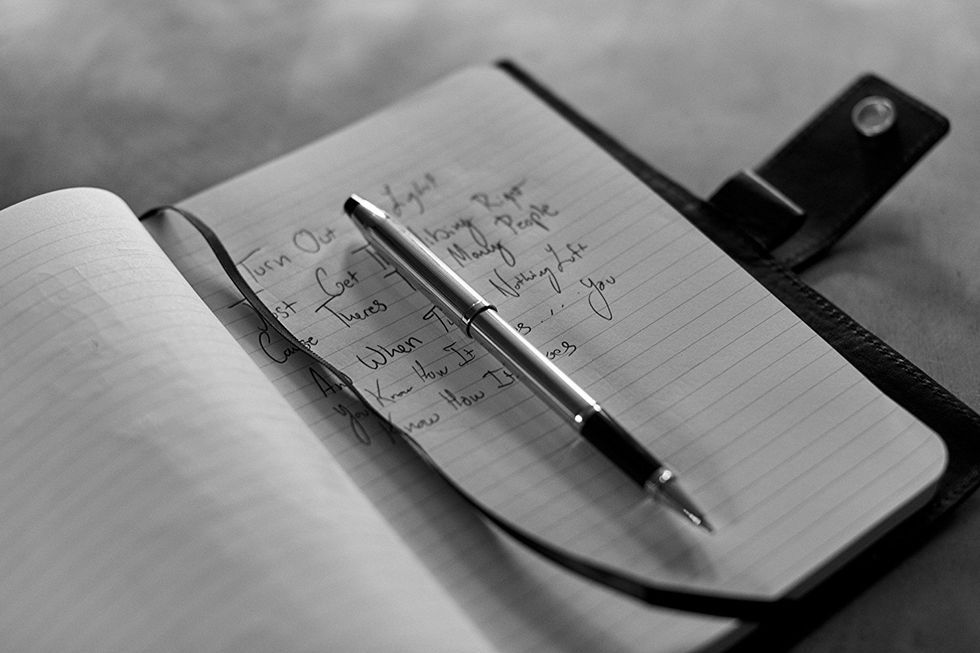 Turn Out Light
Just Get Right
Cause Theres Many People
And When Nothing Left
You Know How It You
Know How It